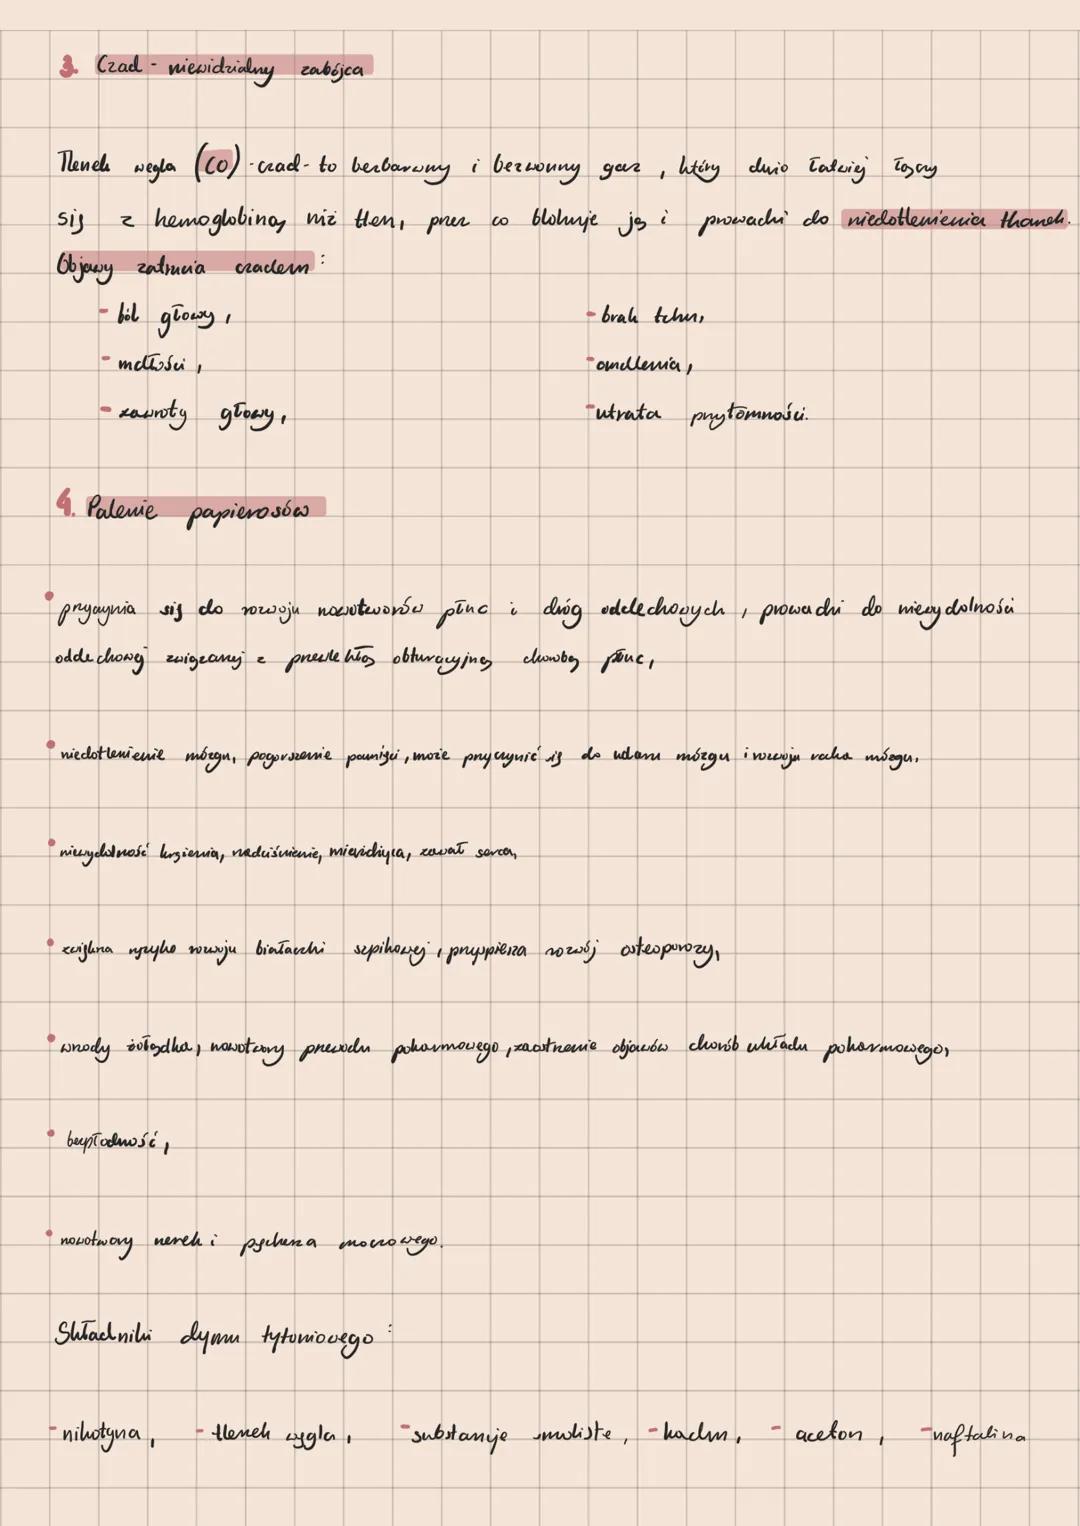 3. Czad - niewidzialny zabójca
Tlenek węgla (CO) - czad - to bezbarwny i bezwonny gaz, który dużo łatwiej łączy
się z hemoglobiną niż tlen, przez co blokuje ją i prowadzi do niedotlenienia tkanek.
Objawy zatrucia czadem:
- ból głowy, - brak tchu,
- mdłości, - omdlenia,
- zawroty głowy, - utrata przytomności.
4. Palenie papierosów
• przyczynia się do rozwoju nowotworów płuc i dróg oddechowych, prowadzi do niewydolności
oddechowej związanej z przewlekłą obturacyjną chorobą płuc,
• niedotlenienie mózgu, pogorszenie pamięci, może przyczynić się do udaru mózgu i rozwoju raka mózgu,
• niewydolność krążenia, nadciśnienie, miażdżyca, zawał serca,
• zwiększa ryzyko rozwoju białaczki szpikowej, przyspiesza rozwój osteoporozy,
• wrzody żołądka, nowotwory przewodu pokarmowego, zaostrzenie objawów chorób układu pokarmowego,
• bezpłodność,
• nowotwory nerek i pęcherza moczowego.
Składniki dymu tytoniowego:
- nikotyna, - tlenek węgla, - substancje smoliste, - kadm, - aceton, - naftalina